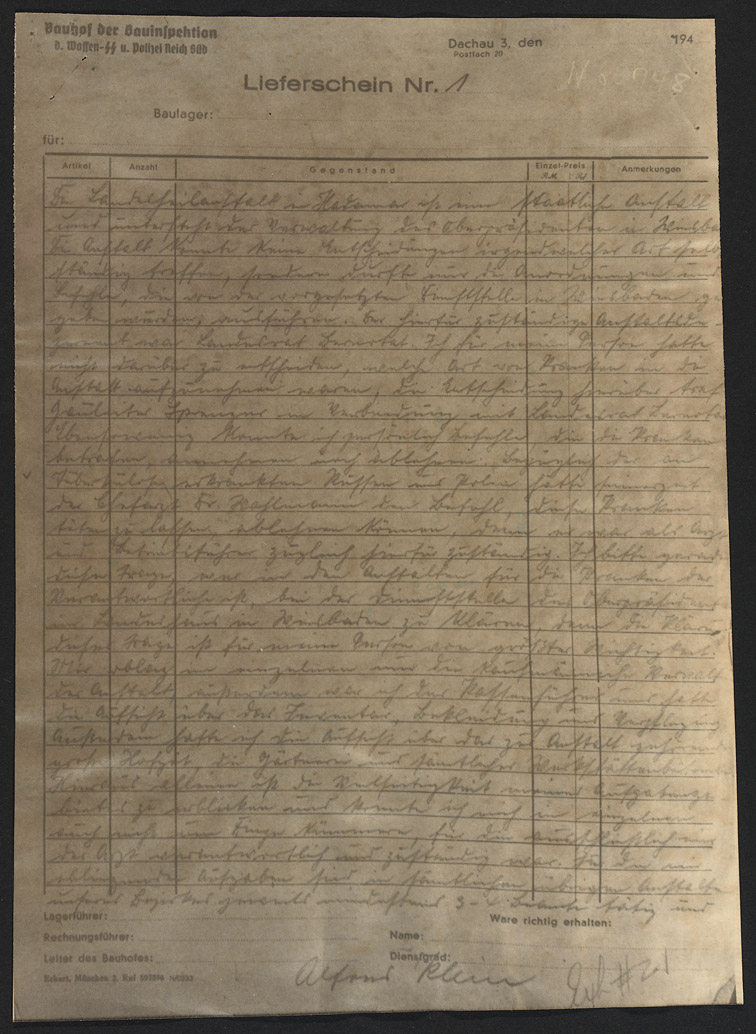 Bauhof der Bauinspektion
d. Waffen-SS u. Polizei Reich Süd
Dachau 3, den
194
Postfach 20
Lieferschein Nr. 1
Baulager:
für:
Artikel Anzahl Gegenstand Einzel-Preis Anmerkungen
RM
Die Landesheilanstalt in Hadamar ist eine staatliche Anstalt
und untersteht der Verwaltung des Oberpräsidenten in
Die Anstalt konnte keine Entscheidungen irgendwelcher Art
ständig treffen, sondern durfte nur die Anordnungen und
Befehle, die von der vorgesetzten Dienststelle in Wiesbaden
geben wurden, ausführen. Der hierfür zuständige
war Landesrat Bernotat. Ich für meine Person hatte
nicht darüber zu entscheiden, welche Art von Kranken in die
Anstalt aufzunehmen waren, die Entscheidung hierüber traf
Gauleiter Sprenger in Verbindung mit Landesrat
Ebensowenig konnte ich persönlich Befehle, die die Kranken
betrafen, annehmen noch ablehnen. Bezüglich der an
Tuberkulose erkrankten Russen und Polen hätte seinerzeit
der Chefarzt Dr. Wahlmann den Befehl, diese Kranken
töten zu lassen, ablehnen können, denn er war als Arzt
und Betriebsführer zugleich hierfür zuständig. Ich bitte
diese Frage, wer in den Anstalten für die Kranken der
Verantwortliche ist, bei der Dienststelle des
im Landeshaus in Wiesbaden zu klären, denn die
dieser Frage ist für meine Person von größter Wichtigkeit.
Mir oblag im einzelnen nur die kaufmännische
der Anstalt, außerdem war ich der Kassenführer und hatte
die Aufsicht über das Inventar, Bekleidung und Verpflegung
Außerdem hatte ich die Aufsicht über das zur Anstalt
große Hofgut, die Gärtnerei und sämtlicher
Hieraus alleine ist die Vielseitigkeit meines
zu erblicken und konnte ich mich im einzelnen
auch nicht um Dinge kümmern, für die ausschließlich nur
der Arzt verantwortlich und zuständig war. Für die mir
obliegenden Aufgaben sind in sämtlichen übrigen Anstalten
unseres Bezirkes jeweils mindestens 3-4 Beamte tätig und
Lagerführer:
Ware richtig erhalten:
Rechnungsführer:
Name:
Leiter des Bauhofes:
Dienstgrad:
Eckert, München 2, Ruf
Alfons Klein